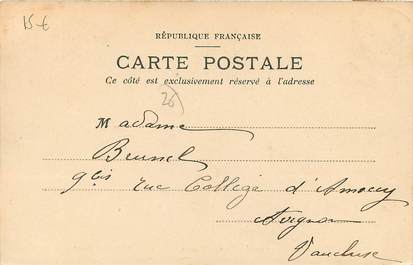 15 €
RÉPUBLIQUE FRANÇAISE
CARTE POSTALE
Ce côté est exclusivement réservé à l'adresse
26
Madame
Brunel
9 bis rue Collège d'Annecy
Avignon
Vaucluse